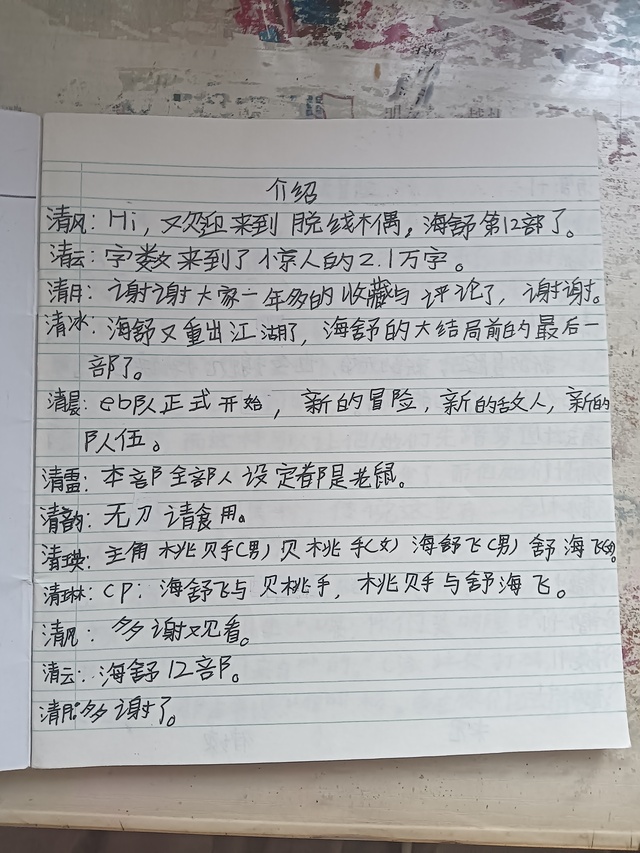 介绍
清风：Hi，欢迎来到脱线木偶，海舒第12部了。
清云：字数来到了惊人的2.1万字。
清月：谢谢大家一年多的收藏与评论了，谢谢。
清冰：海舒又重出江湖了，海舒的大结局前的最后一
部了。
清晨：eb队正式开始，新的冒险，新的敌人，新的
队伍。
清雷：本部全部人设定都是老鼠。
清韵：无刀请食用。
清瑛：主角 桃贝手(男) 贝桃手(女) 海舒飞(男) 舒海飞(女)。
清琳：CP：海舒飞与贝桃手，桃贝手与舒海飞。
清风：多谢观看。
清云：海舒12部。
清月：多谢了。